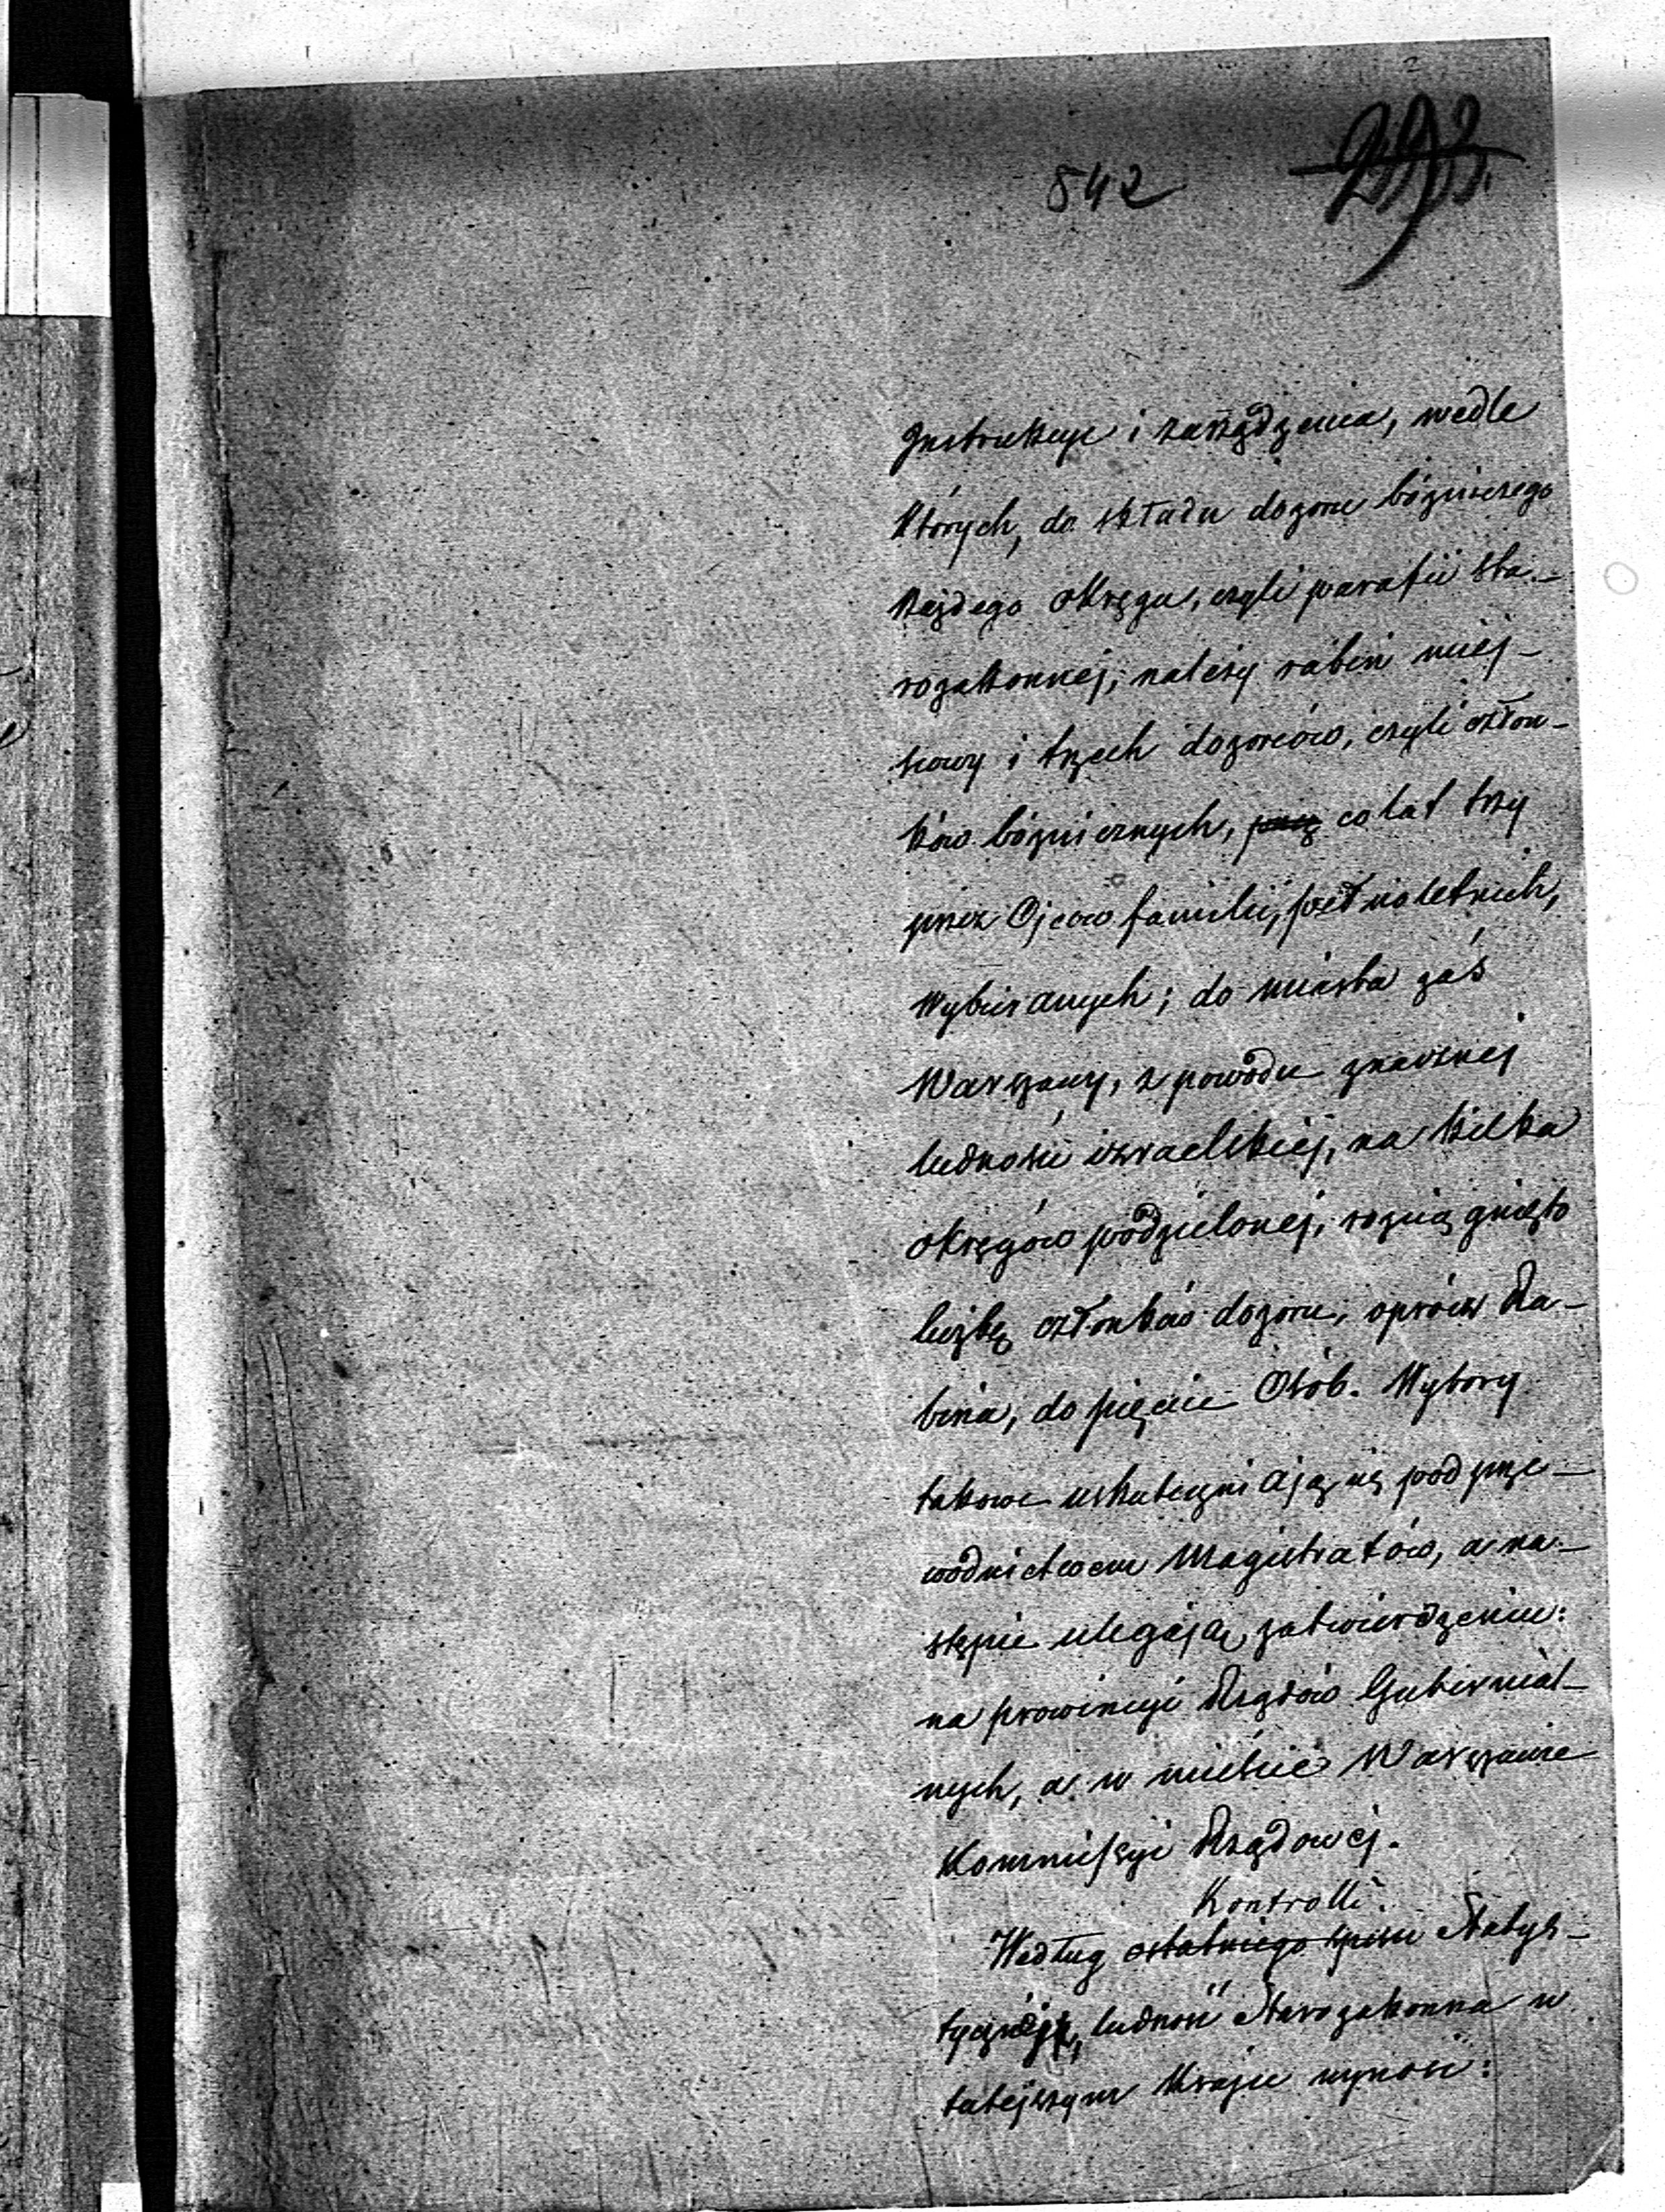 542
Instrukcye i zarządzenia, wedle
których, do składu dozoru bóżniczego
każdego okręgu, czyli parafii sta-
rozakonnej, należy rabin miej-
scowy i trzech dozorców, czyli człon-
ków bóżnicznych, co lat trzy
przez Ojców familii, pełnoletnich,
wybieranych; do miasta zaś
Warszawy, z powodu znacznej
ludności izraelskiej, na kilka
okręgów podzielonej, rozciągnięto
liczbę członków dozoru, oprócz Ra-
bina, do pięciu Osób. Wybory
takowe uskuteczniają się pod prze-
wodnictwem Magistratów, a na-
stępnie ulegają zatwierdzeniu:
na prowincyi Rządów Gubernial-
nych, a w mieście Warszawie
Kommissyi Rządowej.
Kontrolli
Według ostatniego spisu Statys-
tycznej, ludność Starozakonna w
tutejszym Kraju wynosi: